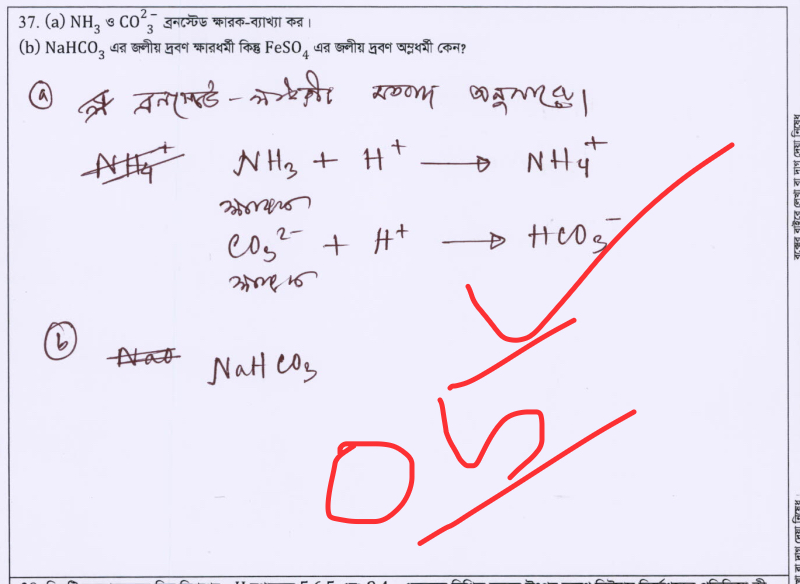 37. (a) NH₃ ও CO²⁻₃ ব্রনস্টেড ক্ষারক-ব্যাখ্যা কর।
(b) NaHCO₃ এর জলীয় দ্রবণ ক্ষারধর্মী কিন্তু FeSO₄ এর জলীয় দ্রবণ অম্লধর্মী কেন?
(a) ব্রনস্টেড - লাউরী মতবাদ অনুসারে।
NH₄⁺ NH₃ + H⁺ → NH₄⁺
ক্ষারক
CO₃²⁻ + H⁺ → HCO₃⁻
ক্ষারক
(b) NaHCO₃
05